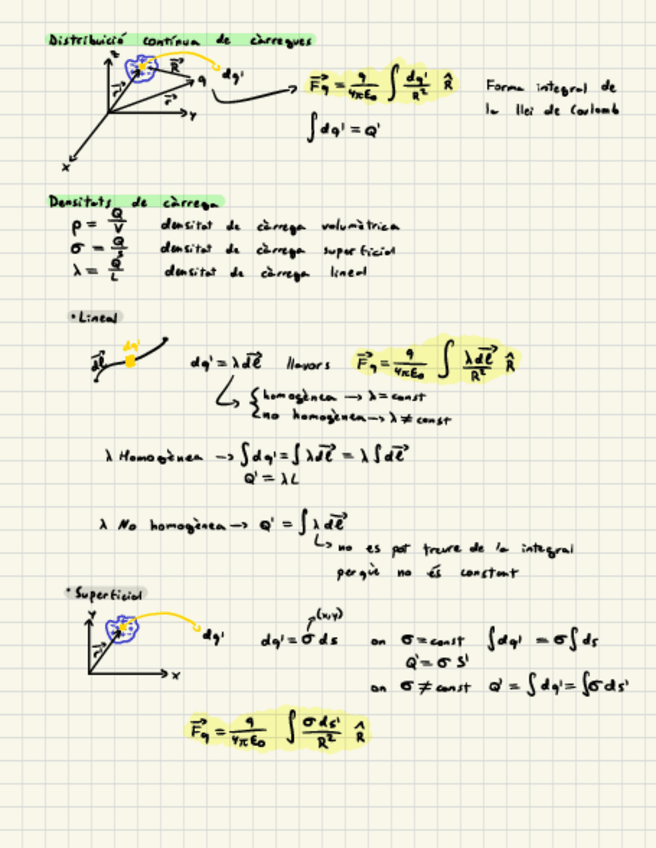 Distribució contínua de càrregues
z
R⃗
dq'
r⃗'
q
r⃗
y
x
F⃗q = q/4πε₀ ∫ dq'/R² R̂
Forma integral de
la llei de Coulomb
∫dq' = Q'
Densitats de càrrega
ρ = Q/V densitat de càrrega volumètrica
σ = Q/S densitat de càrrega superficial
λ = Q/L densitat de càrrega lineal
• Lineal
dq'
dl⃗
dq' = λdl⃗ llavors F⃗q = q/4πε₀ ∫ λdl⃗/R² R̂
homogènea → λ = const
no homogènea → λ ≠ const
λ Homogènea → ∫dq' = ∫λdl⃗ = λ∫dl⃗
Q' = λL
λ No homogènea → Q' = ∫λdl⃗
↳ no es pot treure de la integral
perquè no és constant
• Superficial
y
dq'
r⃗'
x
(x,y)
dq' = σ ds on σ = const ∫dq' = σ∫ds
Q' = σ S'
on σ ≠ const Q' = ∫dq' = ∫σds'
F⃗q = q/4πε₀ ∫ σds'/R² R̂